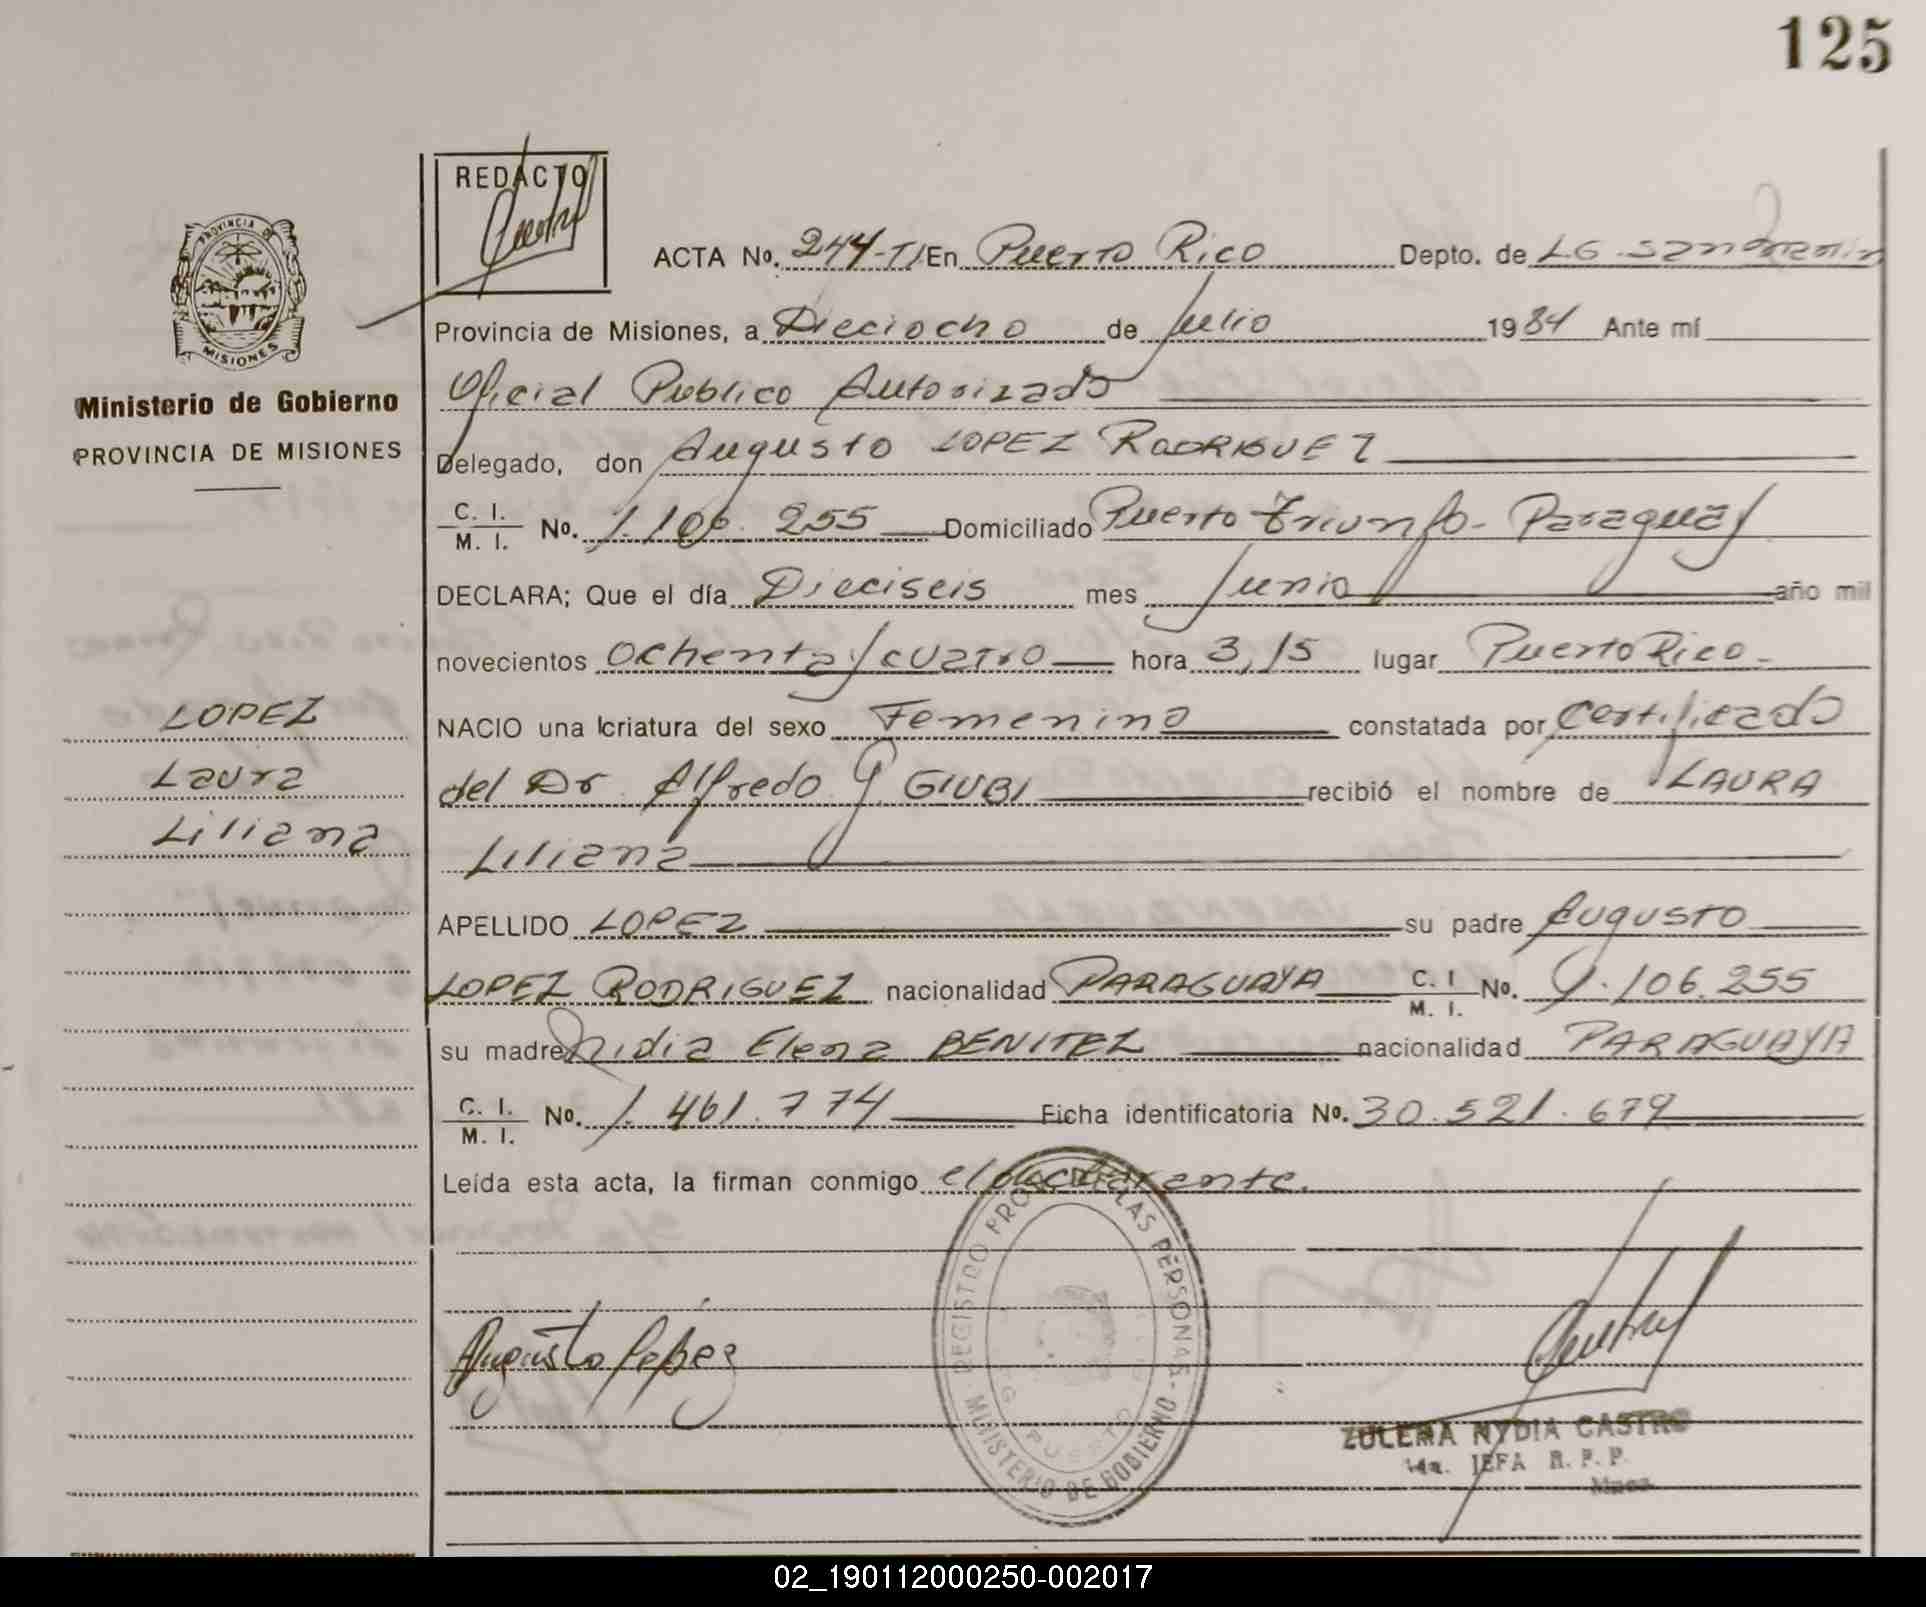 125
REDACTO
ACTA No. 244-TI En Puerto Rico Depto. de LG. San Martin
Provincia de Misiones, a Dieciocho de Julio 1984 Ante mí
Oficial Publico Autorizado
Delegado, don Augusto LOPEZ RODRIGUEZ
C. I. M. I. No. 1.106.255 Domiciliado Puerto Triunfo - Paraguay
DECLARA; Que el día Dieciseis mes Junio año mil
novecientos ochenta y cuatro hora 3,15 lugar Puerto Rico-
NACIO una criatura del sexo Femenino constatada por Certificado
del Dr. Alfredo G. GIUBI recibió el nombre de LAURA
Liliana
APELLIDO LOPEZ su padre Augusto
LOPEZ RODRIGUEZ nacionalidad PARAGUAYA C. I M. I. No. 1.106.255
su madre Nidia Elena BENITEZ nacionalidad PARAGUAYA
C. I. M. I. No. 1.461.774 Ficha identificatoria No. 30.521.679
Leída esta acta, la firman conmigo el declarante.
PROVINCIA DE
MISIONES
Ministerio de Gobierno
PROVINCIA DE MISIONES
LOPEZ
Laura
Liliana
Augusto López
REGISTRO PROV. DE LAS PERSONAS - MINISTERIO DE GOBIERNO -
PUERTO
ZULEMA NYDIA CASTRO
JEFA R. P. P.
Mnes.
02_190112000250-002017